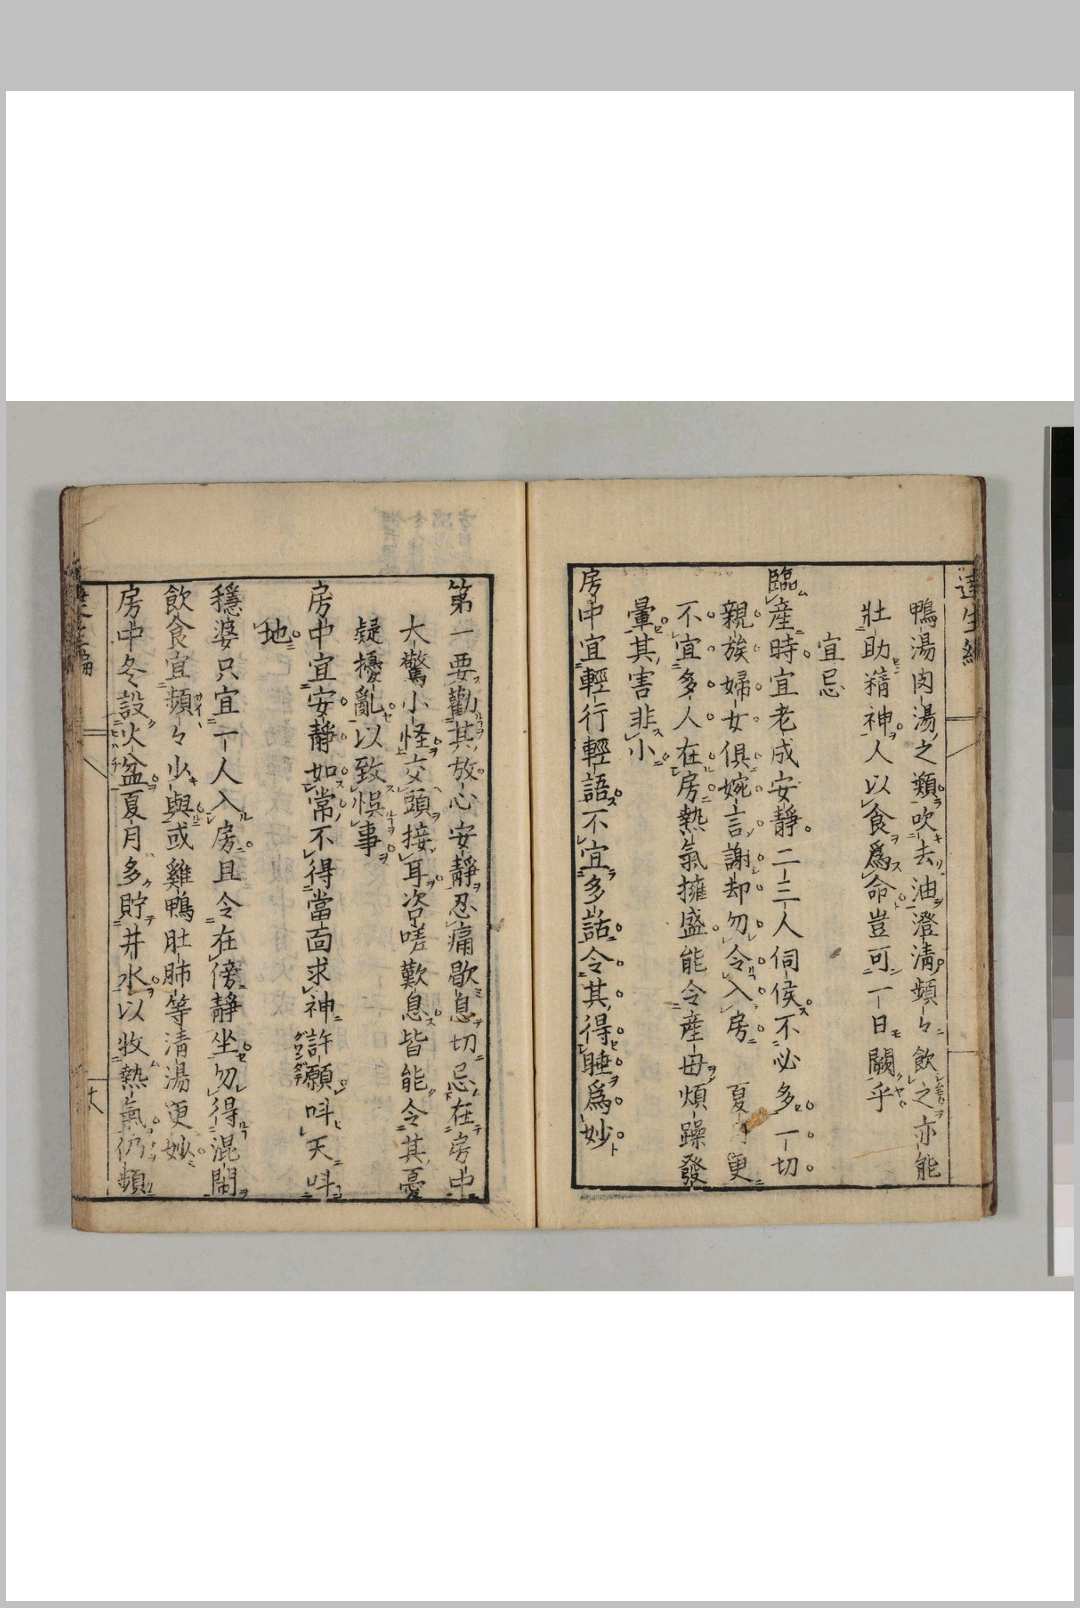 達生編
鴨湯肉湯之類吹去油澄淸頻々飲之亦能
壮助精神人以食爲命豈可一日闕乎
宜忌
臨産時宜老成安靜二三人伺侯不必多一切
親族婦女俱婉言謝却勿令入房夏月更
不宜多人在房熱氣擁盛能令産母煩躁發
暈其害非小
房中宜輕行輕語不宜多話令其得睡爲妙
第一要勸其放心安靜忍痛歇息切忌在房中
大驚小怪交頭接耳咨嗟歎息皆能令其憂
疑擾亂以致悞事
房中宜安靜如常不得當面求神許願呌天呌
地
穩婆只宜一人入房且令在傍靜坐勿得混閙
飲食宜頻々少與或雞鴨肚肺等清湯更妙
房中冬設火盆夏月多貯井水以收熱氣仍頻